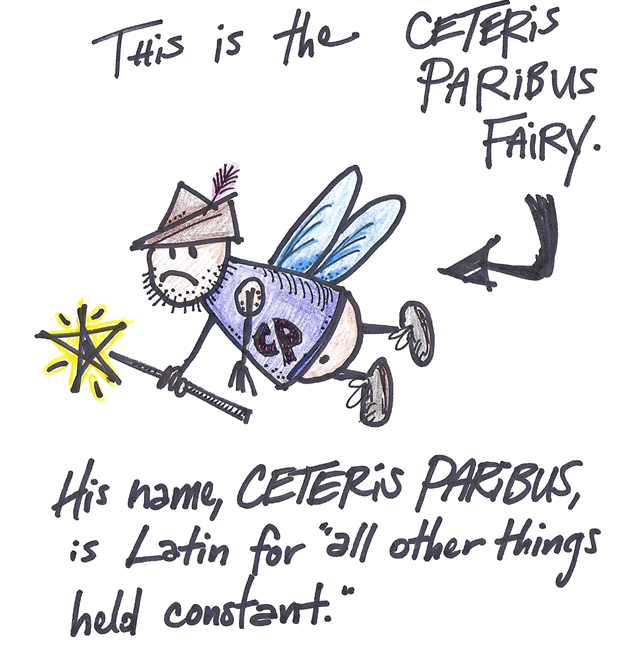 This is the CETERIS
PARIBUS
FAIRY.
CP
His name, CETERIS PARIBUS,
is Latin for "all other things
held constant."